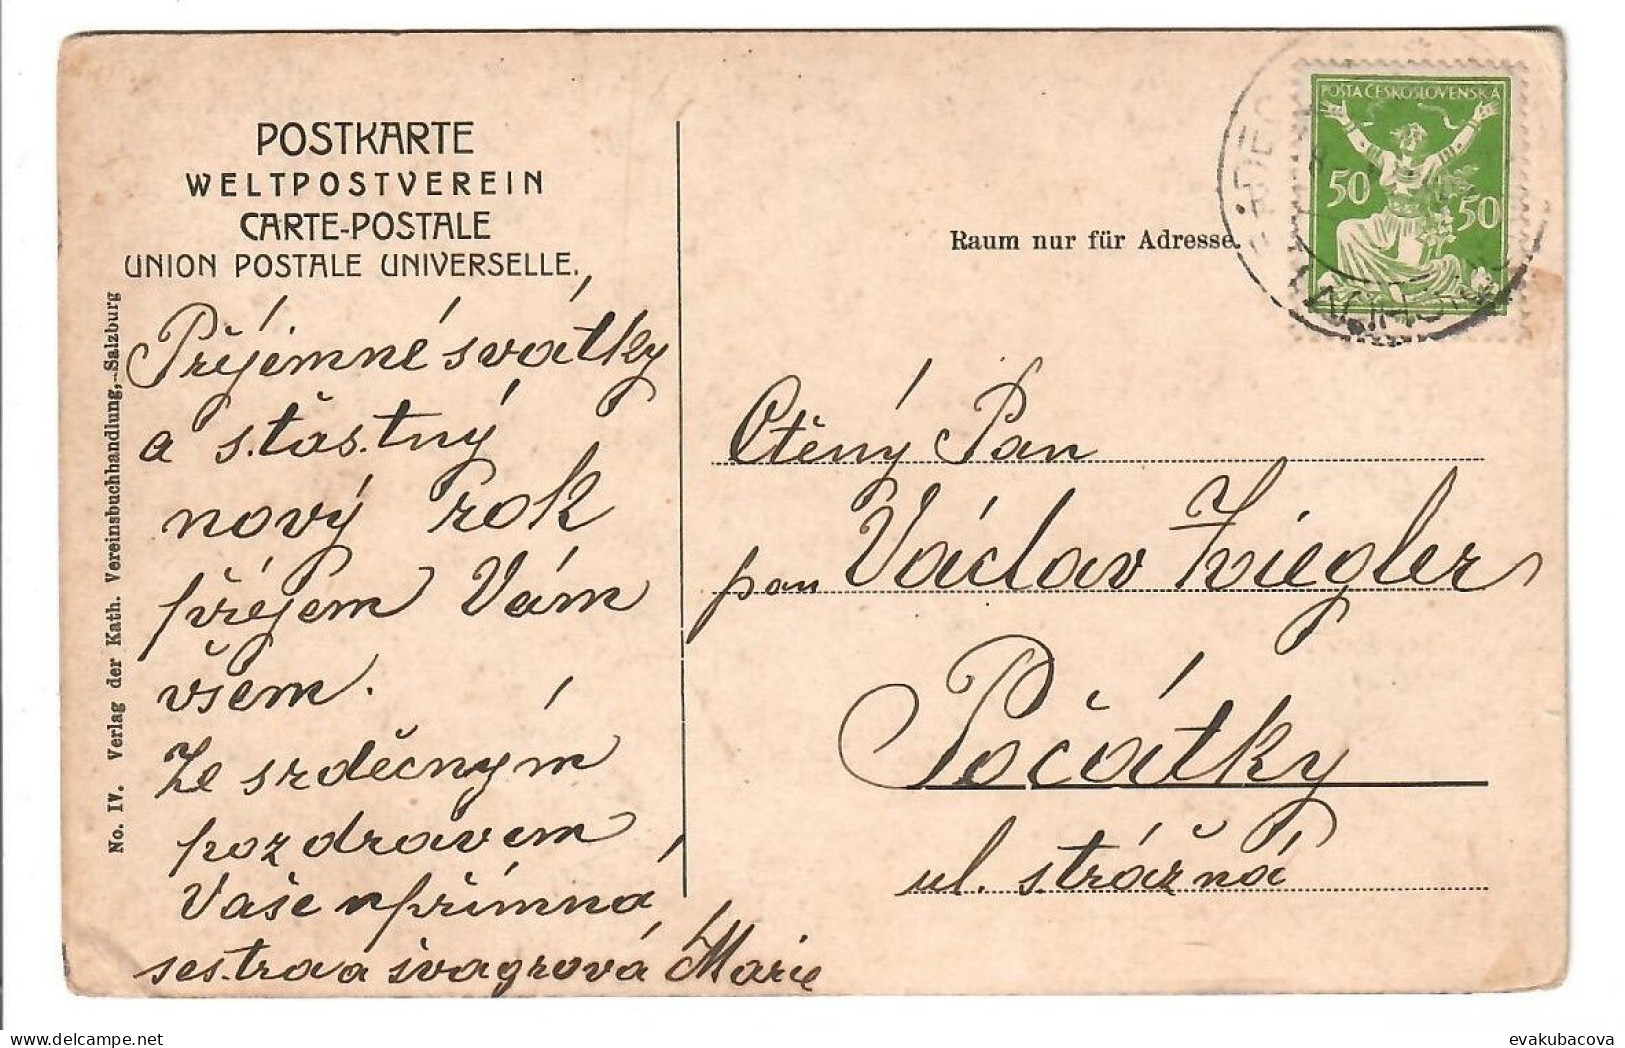 POSTKARTE
WELTPOSTVEREIN
CARTE-POSTALE
UNION POSTALE UNIVERSELLE.
Příjemné svátky
a šťastný
nový rok
přejem Vám
všem.
Ze srdečným
pozdravem
Vaše upřímná
sestra a švagrová Marie
No. IV. Verlag der Kath. Vereinsbuchhandlung, Salzburg
POŠTA ČESKOSLOVENSKÁ
50 50
Raum nur für Adresse.
Ctěný Pan
pan Václav Ziegler
Počátky
ul. strážná
evakubacova